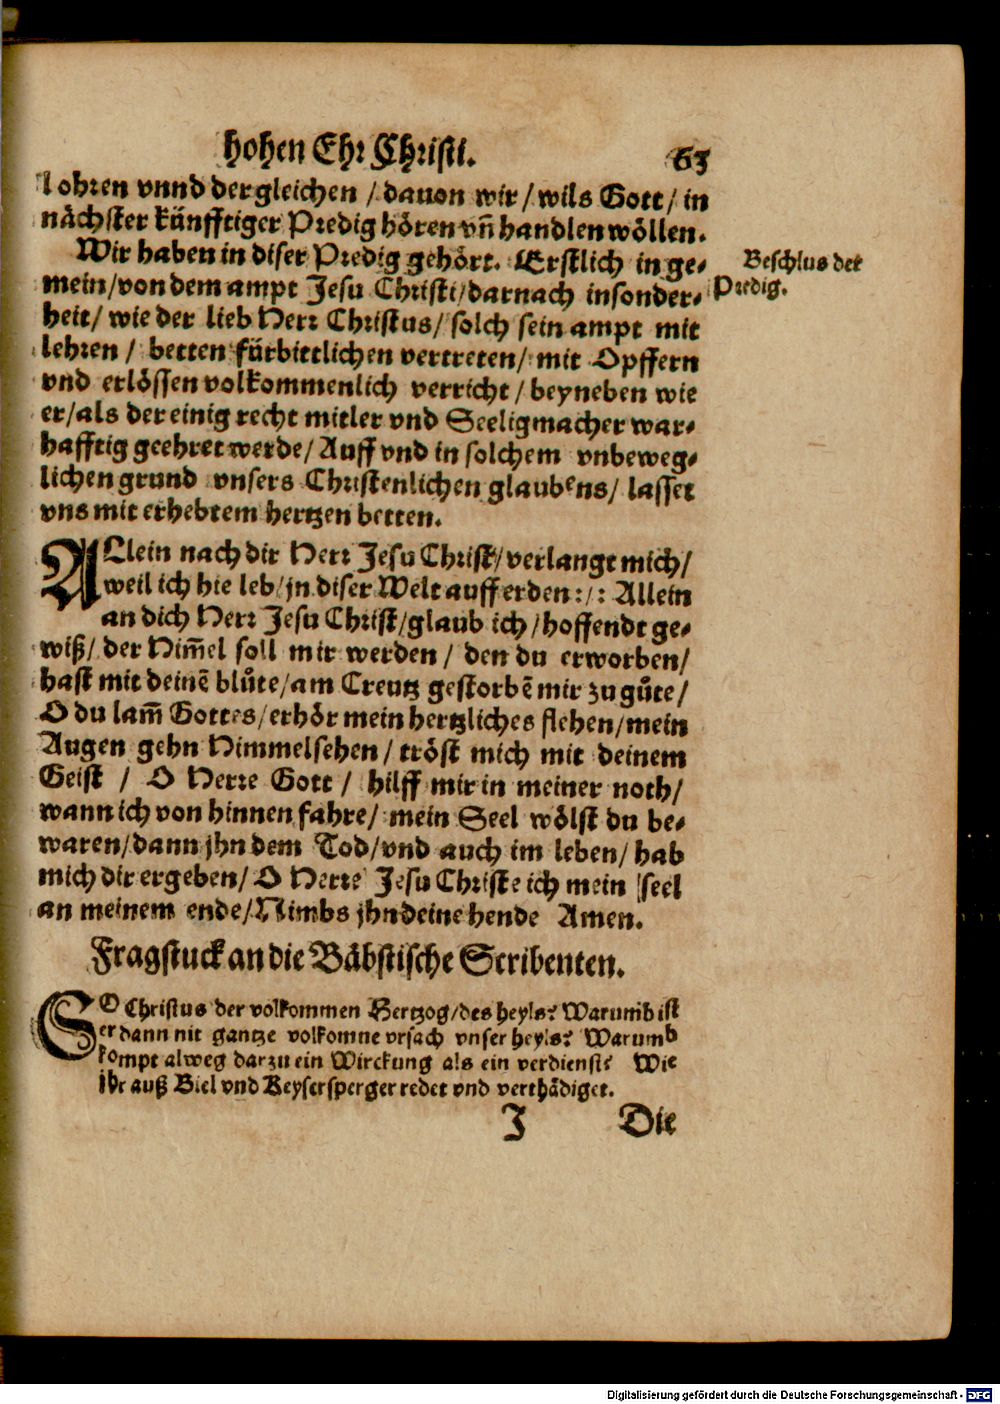 hohen Ehr Christi. 63
lohren vnnd dergleichen / dauon wir / wils Gott / in
nächster künfftiger Predig hören vn̄ handlen wöllen.
Wir haben in diser Predig gehört. Erstlich in ge-
mein / von dem ampt Jesu Christi / darnach insonder-
heit / wie der lieb Herr Christus / solch sein ampt mit
lehren / betten fürbittlichen vertreten / mit Opffern
vnd erlössen volkommenlich verricht / beyneben wie
er / als der einig recht mitler vnd Seeligmacher war-
hafftig geehret werde / Auff vnd in solchem vnbeweg-
lichen grund vnsers Christenlichen glaubens / lasset
vns mit erhebtem hertzen betten.
Beschlus der
Predig.
ALlein nach dir Herr Jesu Christ / verlangt mich /
weil ich hie leb / jn diser Welt auff erden :/: Allein
an dich Herr Jesu Christ / glaub ich / hoffendt ge-
wiß / der Him̄el soll mir werden / den du erworben /
hast mit deinē blůte / am Creutz gestorbē mir zu gůte /
O du lam̄ Gottes / erhör mein hertzliches flehen / mein
Augen gehn Himmel sehen / tröst mich mit deinem
Geist / O Herre Gott / hilff mir in meiner noth /
wann ich von hinnen fahre / mein Seel wölst du be-
waren / dann jhn dem Tod / vnd auch im leben / hab
mich dir ergeben / O Herre Jesu Christe ich mein seel
an meinem ende / Nimbs jhn deine hende Amen.
Fragstuck an die Bäbstische Scribenten.
SO Christus der volkommen Hertzog / des heyls? Warumb ist
er dann nit gantze volkomne vrsach vnser heyls? Warumb
kompt alweg darzu ein Wirckung als ein verdienst? Wie
jhr auß Biel vnd Keysersperger redet vnd verthädiget.
J Die
Digitalisierung gefördert durch die Deutsche Forschungsgemeinschaft - DFG